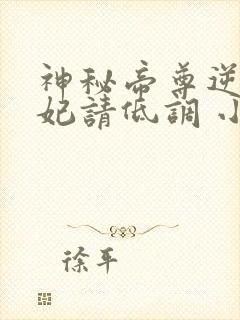 神秘帝尊逆
妃請低調 小
徐平